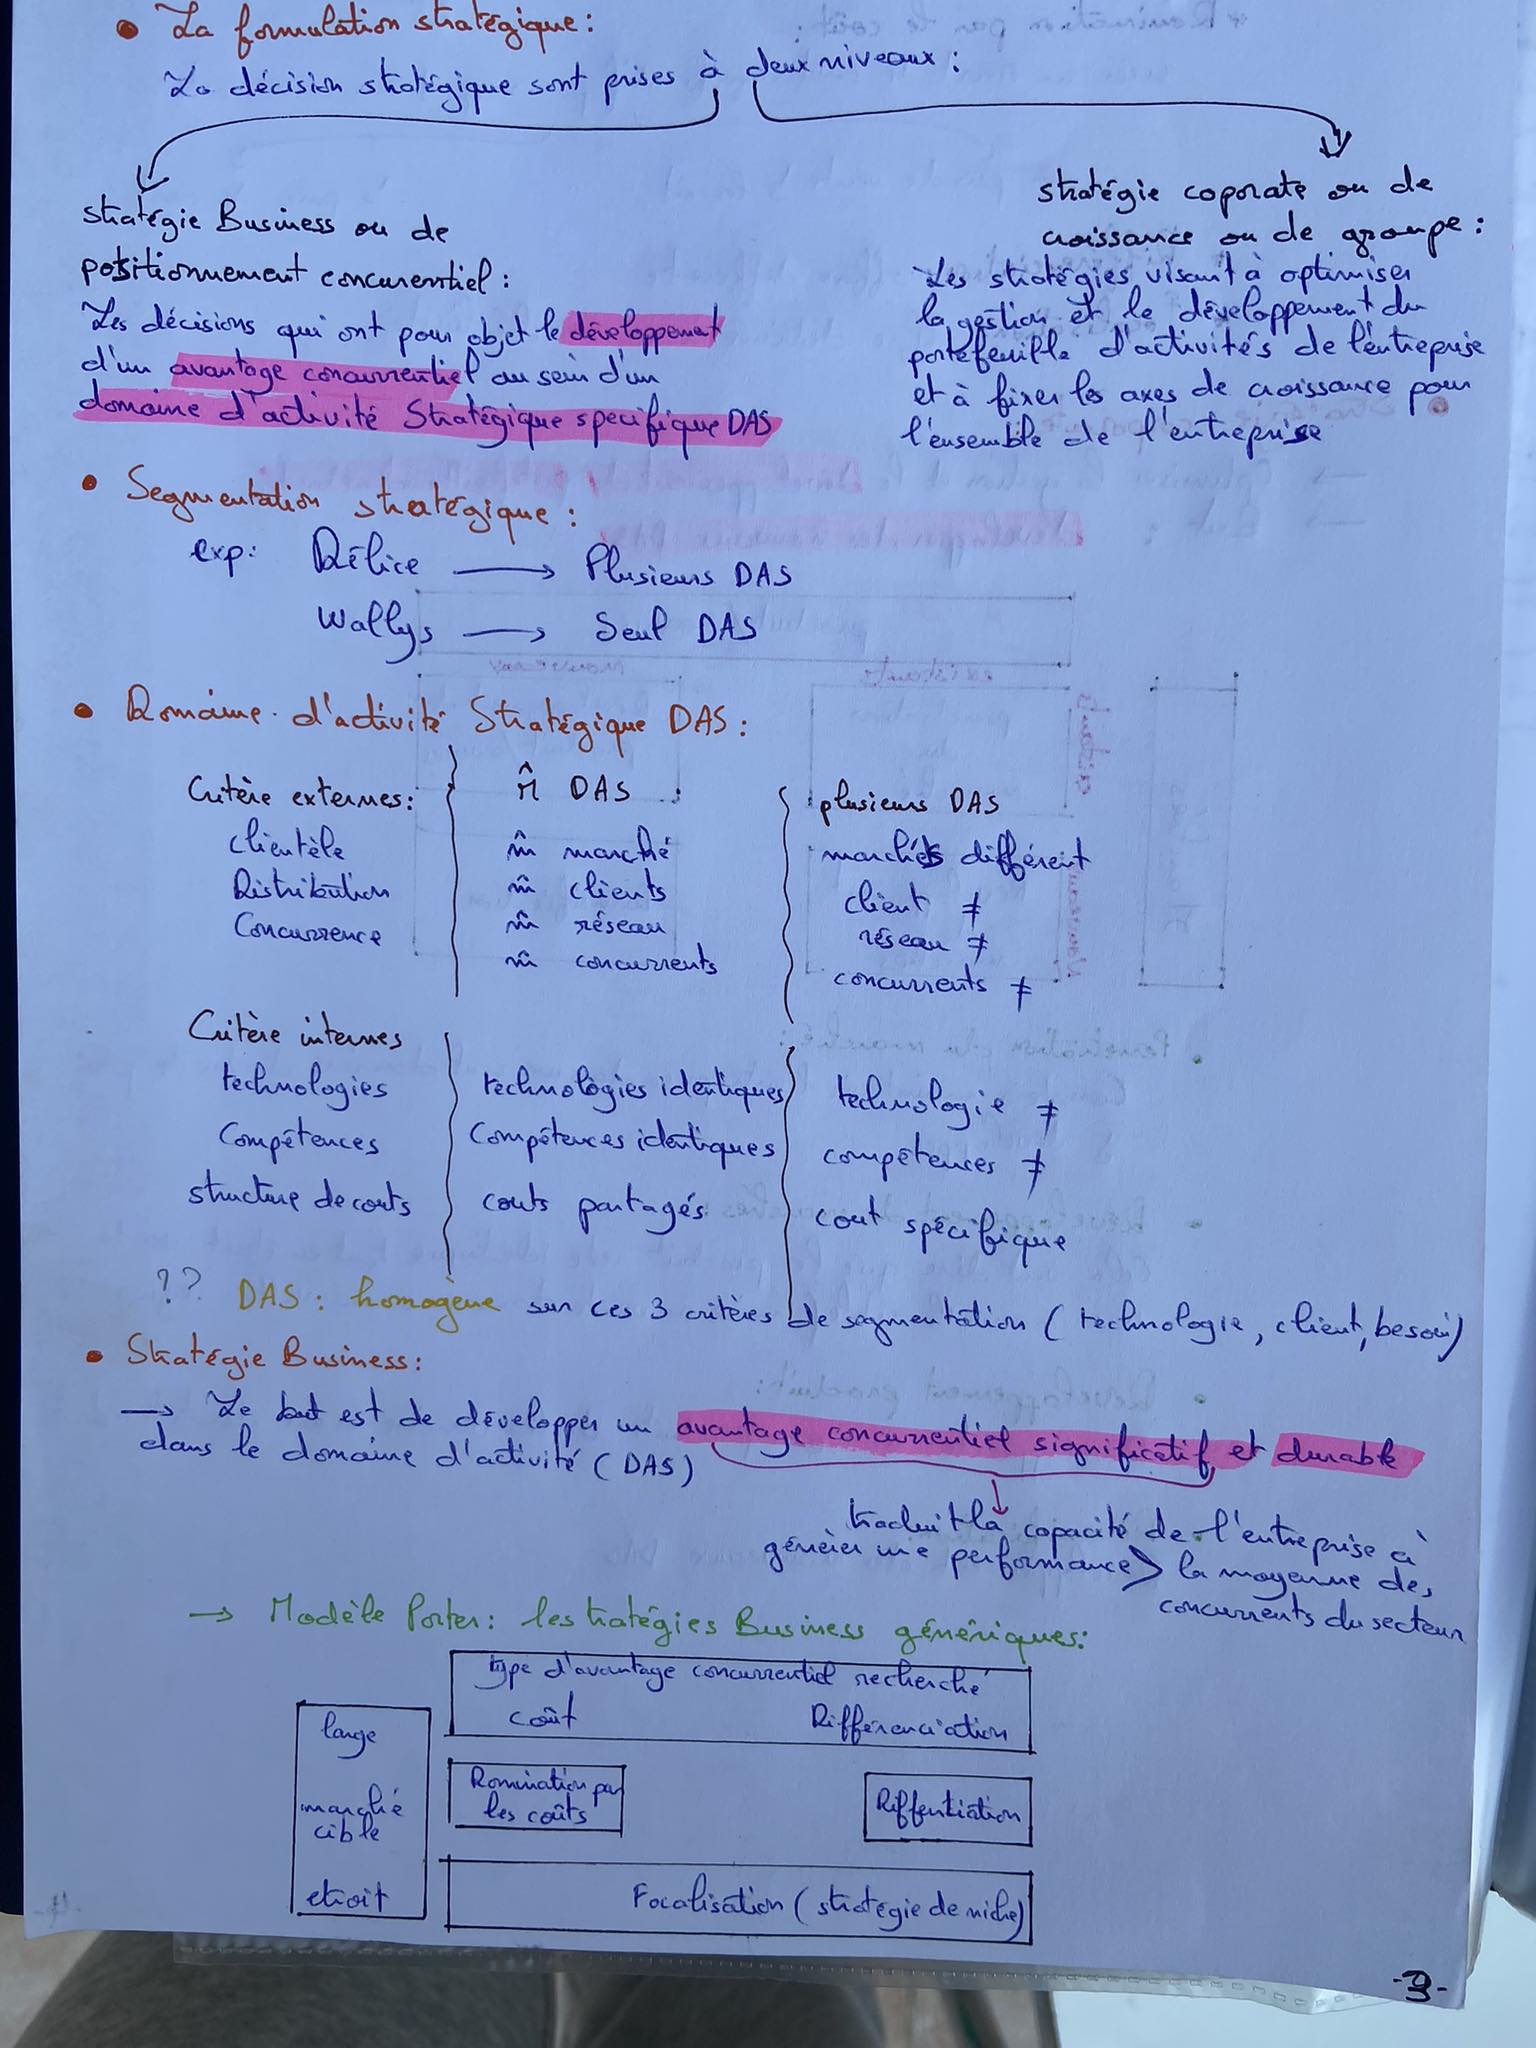 • La formulation stratégique :
La décision stratégique sont prises à deux niveaux :
stratégie Business ou de
positionnement concurentiel :
Les décisions qui ont pour objet le développement
d'un avantage concurrentiel au sein d'un
domaine d'activité Stratégique specifique DAS
stratégie coporate ou de
croissance ou de groupe :
Les stratégies visant à optimiser
la gestion et le développement du
portefeuille d'activités de l'entreprise
et à fixer les axes de croissance pour
l'ensemble de l'entreprise
• Segmentation stratégique :
exp: Délice → Plusieurs DAS
Wallys → Seul DAS
• Domaine d'activité Stratégique DAS :
Critère externes: m̂ DAS plusieurs DAS
Clientèle m̂ marché marchés différent
Distribution m̂ clients client ≠
Concurrence m̂ réseau réseau ≠
m̂ concurrents concurrents ≠
Critère internes
technologies technologies identiques technologie ≠
Compétences Compétences identiques compétences ≠
structure de couts couts partagés cout spécifique
?? DAS : homogène sur ces 3 critères de segmentation (technologie, client, besoin)
• Stratégie Business :
→ Le but est de développer un avantage concurrentiel significatif et durable
dans le domaine d'activité (DAS)
traduit la capacité de l'entreprise à
générer une performance > la moyenne des
concurrents du secteur
→ Modèle Porter : les tratégies Business génériques:
type d'avantage concurrentiel recherché
coût Différenciation
large
marché
cible
etroit
Domination par
les coûts
Differtiation
Focalisation (stratégie de niche)
-3-